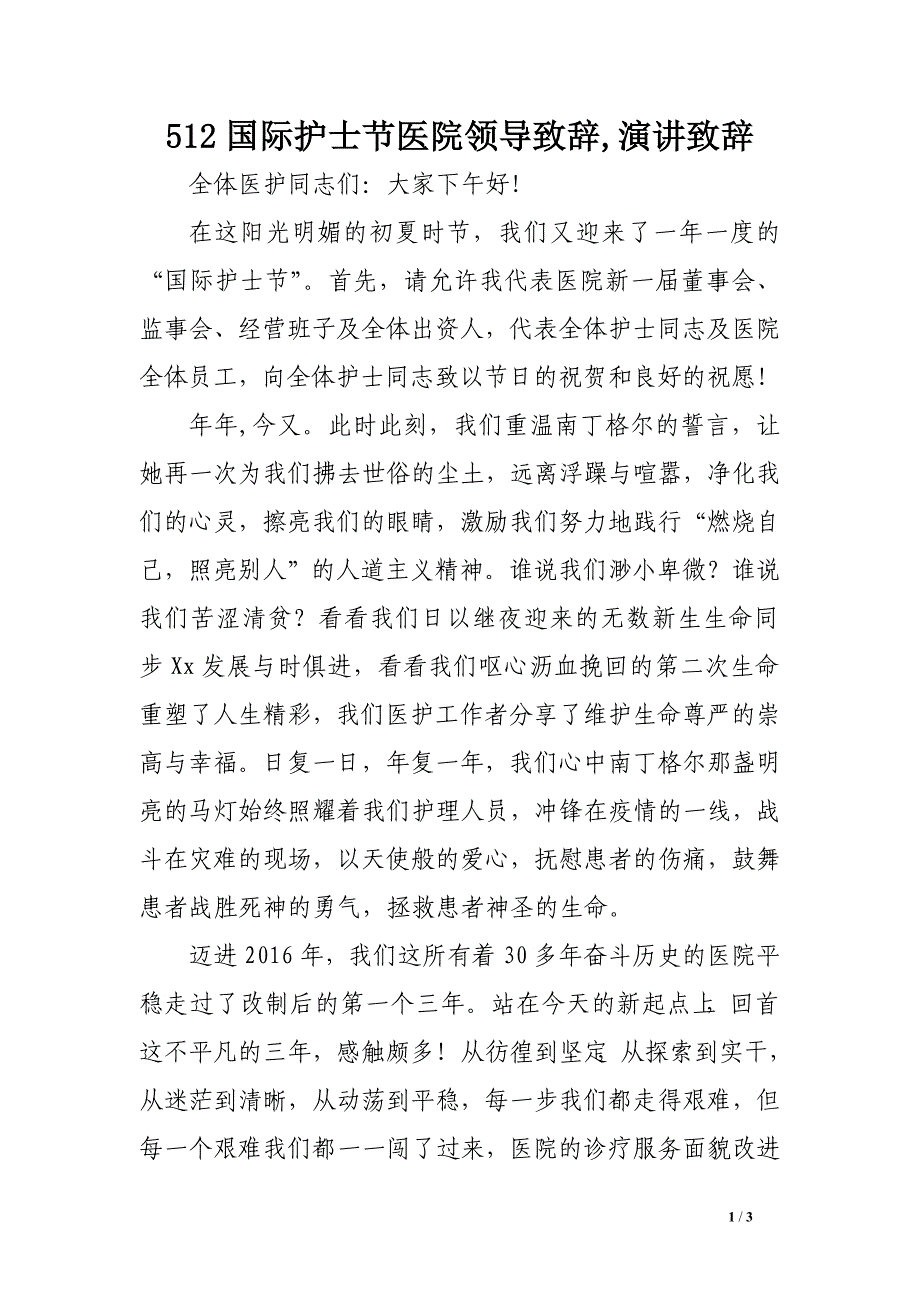 512国际护士节医院领导致辞,演讲致辞
全体医护同志们：大家下午好！
在这阳光明媚的初夏时节，我们又迎来了一年一度的
“国际护士节”。首先，请允许我代表医院新一届董事会、
监事会、经营班子及全体出资人，代表全体护士同志及医院
全体员工，向全体护士同志致以节日的祝贺和良好的祝愿！
年年,今又。此时此刻，我们重温南丁格尔的誓言，让
她再一次为我们拂去世俗的尘土，远离浮躁与喧嚣，净化我
们的心灵，擦亮我们的眼睛，激励我们努力地践行“燃烧自
己，照亮别人”的人道主义精神。谁说我们渺小卑微？谁说
我们苦涩清贫？看看我们日以继夜迎来的无数新生生命同
步Xx发展与时俱进，看看我们呕心沥血挽回的第二次生命
重塑了人生精彩，我们医护工作者分享了维护生命尊严的崇
高与幸福。日复一日，年复一年，我们心中南丁格尔那盏明
亮的马灯始终照耀着我们护理人员，冲锋在疫情的一线，战
斗在灾难的现场，以天使般的爱心，抚慰患者的伤痛，鼓舞
患者战胜死神的勇气，拯救患者神圣的生命。
迈进2016年，我们这所有着30多年奋斗历史的医院平
稳走过了改制后的第一个三年。站在今天的新起点上，回首
这不平凡的三年，感触颇多！从彷徨到坚定，从探索到实干，
从迷茫到清晰，从动荡到平稳，每一步我们都走得艰难，但
每一个艰难我们都一一闯了过来，医院的诊疗服务面貌改进
1 / 3